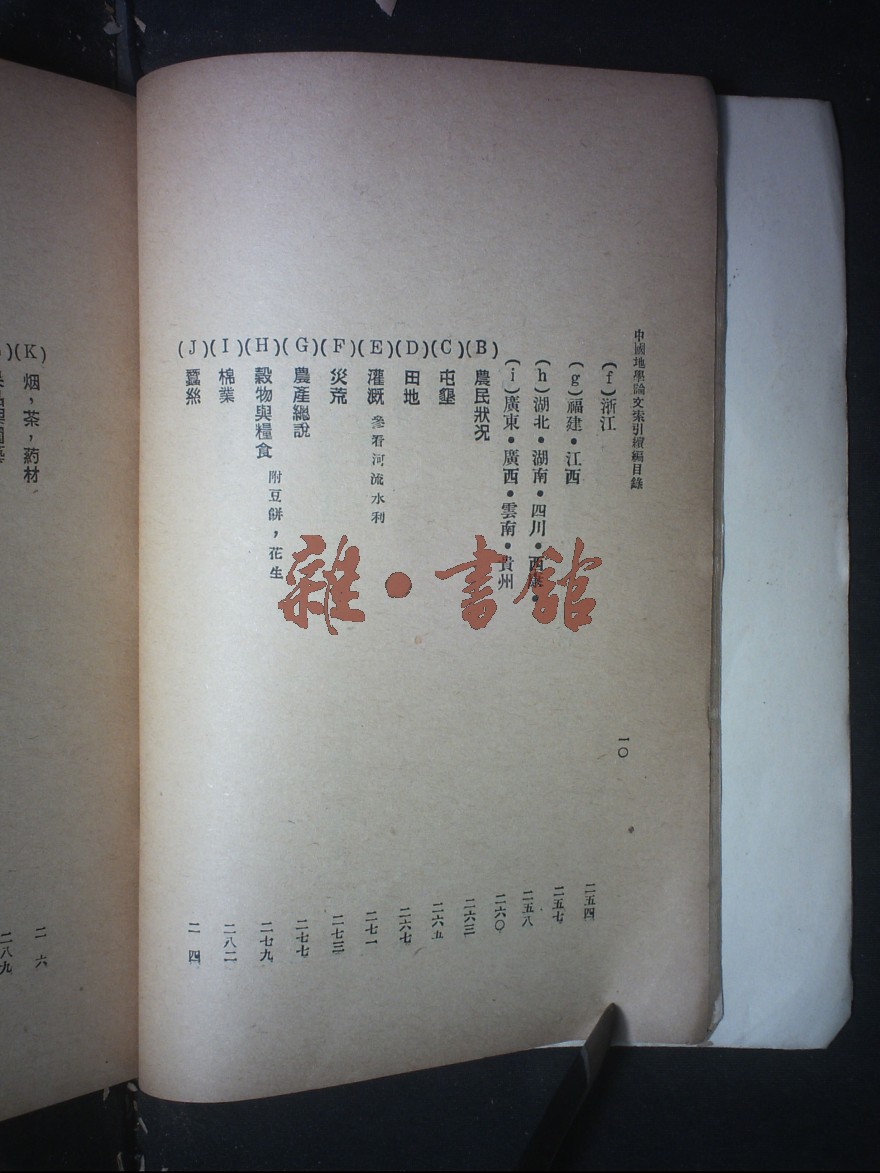 中國地學論文索引續編目錄
一〇
(f)浙江 二五四
(g)福建•江西 二五七
(h)湖北•湖南•四川•西康• 二五八
(i)廣東•廣西•雲南•貴州 二六〇
(B) 農民狀况 二六三
(C) 屯墾 二六五
(D) 田地 二六七
(E) 灌溉 參看河流水利 二七一
(F) 災荒 二七三
(G) 農產總說 二七七
(H) 穀物與糧食 附豆餅，花生 二七九
(I) 棉業 二八二
(J) 蠶絲 二 四
(K) 烟，茶，葯材 二 六
二八九
雜•書館